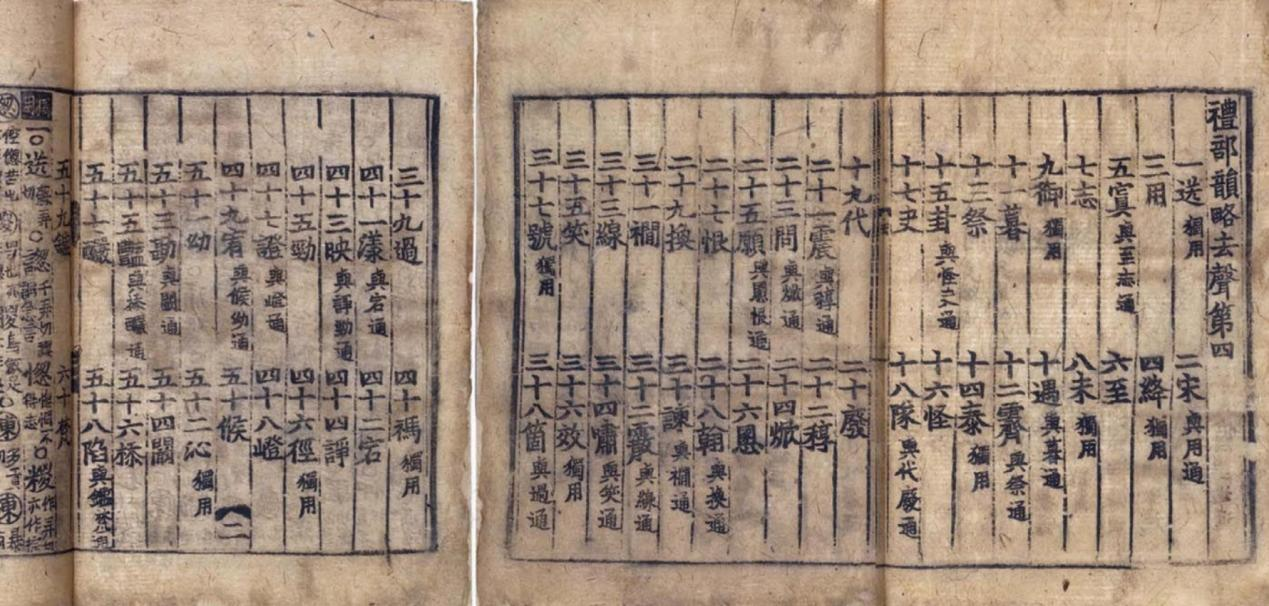 禮部韻略去聲第四
一送 獨用 二宋 與用通
三用 四絳 獨用
五寘 與至志通 六至
七志 八未 獨用
九御 獨用 十遇 與暮通
十一暮 十二霽 與祭通
十三祭 十四泰 獨用
十五卦 與怪夬通 十六怪
十七夬 十八隊 與代廢通
十九代 二十廢
二十一震 與稕通 二十二稕
二十三問 與焮通 二十四焮
二十五願 與慁恨通 二十六慁
二十七恨 二十八翰 與換通
二十九換 三十諫 與襇通
三十一襇 三十二霰 與線通
三十三線 三十四嘯 與笑通
三十五笑 三十六效 獨用
三十七號 獨用 三十八箇 與過通
三十九過 四十禡 獨用
四十一漾 與宕通 四十二宕
四十三映 與諍勁通 四十四諍
四十五勁 四十六徑 獨用
四十七證 與嶝通 四十八嶝
四十九宥 與候幼通 五十候
二
五十一幼 五十二沁 獨用
五十三勘 與闞通 五十四闞
五十五豔 與㮇釅通 五十六㮇
五十七釅 五十八陷 與鑑梵通
五十九鑑 六十梵
○送